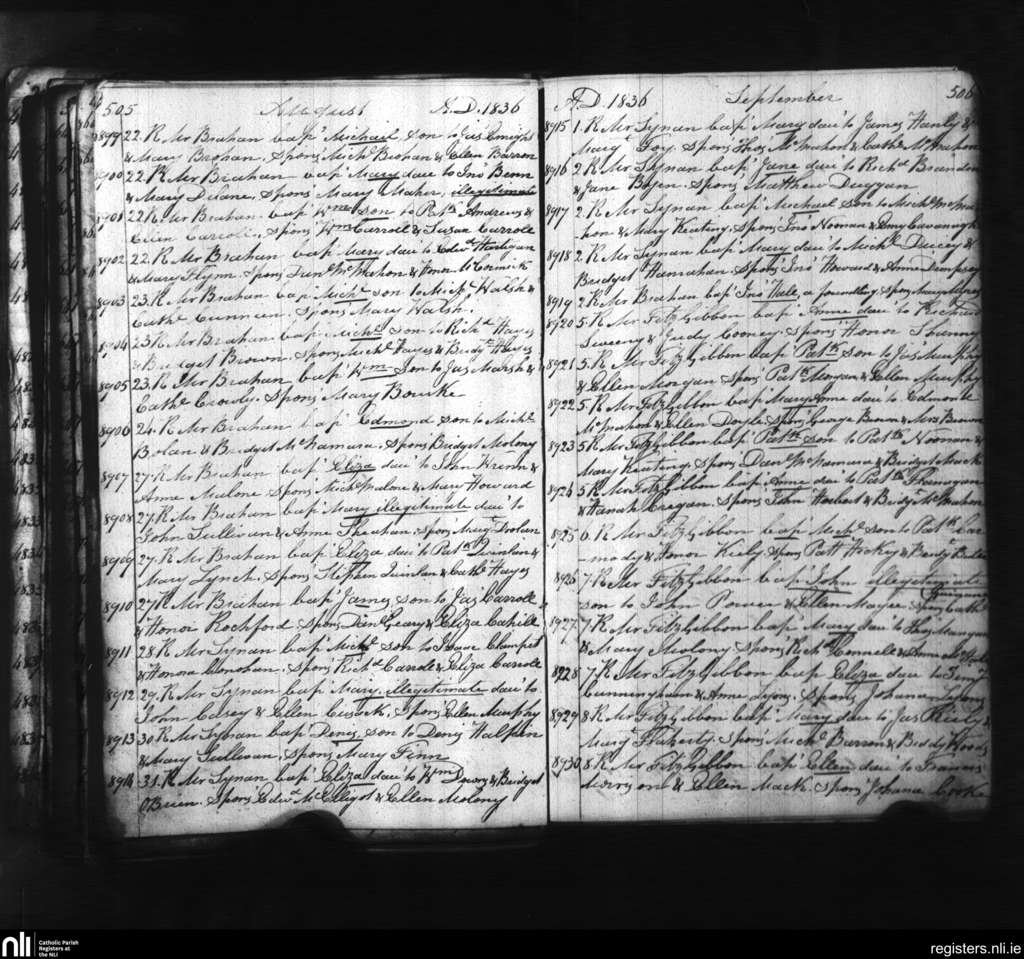 505 August A.D. 1836
8899 22. R Mr Brahan bap' Michael son to
& Mary Brohan. Spons' Mich'l Brohan & Ellen Barron
8900 22. R Mr Brahan bap' Mary dau' to Jno
& Mary Duane, Spons' Mary Maher, illegitimate
8901 22. R Mr Brahan bap' Wm son to Patk Andrews &
Carroll. Spons' Wm Carroll & Susan Carroll
8902 22. R Mr Brahan bap' Mary dau' to Edwd Hartigan
& Mary Flynn. Spons' McMahon & McCormick
8903 23. R Mr Brahan bap' Mich'l son to Mich'l Walsh &
Cathe Spons Mary Walsh.
8904 23. R Mr Brahan bap' Mich'l son to Richd Hayes
& Bridget Brown. Spons' Mich'l Hayes & Bridgt Hayes
8905 23. R Mr Brahan bap' Wm Son to Jas Marsh &
Cathe Crowly. Spons' Mary Bourke
8906 24. R Mr Brahan bap' Edmond son to Mich'l
Bolan & Bridget McNamara. Spons' Bridget Molony
8907 27. R Mr Brahan bap' Eliza dau' to John &
Anne Malone Spons' Mich'l Malone & Mary Howard
8908 27. R Mr Brahan bap' Mary illegitimate dau' to
John Sullivan & Anne Sheahan. Spon'
8909 27. R Mr Brahan bap' Eliza dau' to Patk Quinlan &
Mary Lynch. Spons' Stephen Quinlan & Cathe Hayes
8910 27. R Mr Brahan bap' James son to Jas Carroll
& Honor Rochford Spons' Danl Geary & Eliza Cahill
8911 28. R Mr Synan bap' Mich'l son to Isaac
& Honora Spons' Richd Carroll & Eliza Carroll
8912 29. R Mr Synan bap' Mary, illegitimate dau' to
John Casey & Ellen Cusack. Spons' Ellen Murphy
8913 30. R Mr Synan bap' Denis son to Denis Halpin
& Mary Sullivan, Spons' Mary Finn
8914 31. R Mr Synan bap' Eliza dau' to Wm & Bridget
O'Brien. Spons' Edwd McElligot & Ellen Molony
A.D. 1836 September 506
8915 1. R Mr Synan bap' Mary dau' to James Hanly &
Mary Foy. Spons Thos McMahon & Cathe McMahon
8916 2. R Mr Synan bap' Jane dau' to Richd Brandon
& Jane Spons' Matthew Duggan
8917 2. R Mr Synan bap' Michael son to Mich'l McMa-
hon & Mary Keating. Spons' Jno Noonan & Cavanagh
8918 2. R Mr Synan bap' Mary dau' to Mich'l Ducey &
Bridget Hanrahan Spons' Jno Howard & Anne Dempsey
8919 2. R Mr Brahan bap' Jno Vale, a foundling Spons' Mary
8920 5. R Mr FitzGibbon bap' Anne dau' to Richard
Sweeny & Judy Cooney. Spons' Honor
8921 5. R Mr FitzGibbon bap' Patk son to Jas Murphy
& Ellen Morgan Spons' Patk Morgan & Ellen Murphy
8922 5. R Mr FitzGibbon bap' Mary Anne dau' to Edmond
McMahon & Ellen Doyle Spons' George Brown & Mrs Brown
8923 5 R Mr FitzGibbon bap' Patk son to Patk Noonan &
Mary Keating. Spons' Danl McNamara & Bridget Mack
8924 5 R Mr FitzGibbon bap' Anne dau' to Patk Flanagan
& Hanah Cregan. Spons' John & Bridgt McMahon
8925 6. R Mr FitzGibbon bap' Mich'l son to Patk Car-
mody & Honor Kiely Spons' Patt Hickey & Bridgt
8926 7. R Mr FitzGibbon bap' John illegitimate
son to John Power & Ellen Spons' Cathe
8927 7. R Mr FitzGibbon bap' Mary dau' to Thos Mangan
& Mary Molony Spons' Richd Connell & Anne
8928 7. R Mr FitzGibbon bap' Eliza dau' to
Cunningham & Anne Lyons. Spons' Johana Lyons
8929 8 R Mr FitzGibbon bap' Mary dau' to Jas Kiely &
Mary Flaherty. Spons' Mich'l Barron & Biddy Woods
8930 8 R Mr FitzGibbon bap' Ellen dau' to Francis
& Ellen Mack. Spons' Johana
nli Catholic Parish
Registers at
the NLI
registers.nli.ie